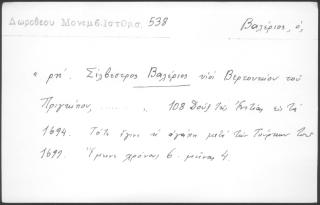 Δωροθέου Μονεμβ. Ιστορ. 538
Βαλέριος, ὁ,
" ρή. Σίλβεστρος Βαλέριος υἱὸς Βερτουκίου τοῦ
Πριγκίπου, ..... , 108 Δούξ τῆς Βενετίας εἰς τὰ
1694. Τότε ἔγινε ἡ ἀγάπη μετὰ τῶν Τούρκων τοῦ
1699. Ἔμεινε χρόνους 6. μῆνας 4.